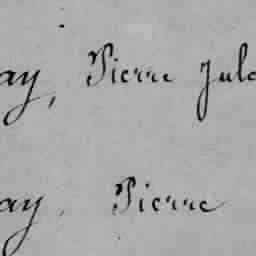 ay, Pierre Jule
ay, Pierre